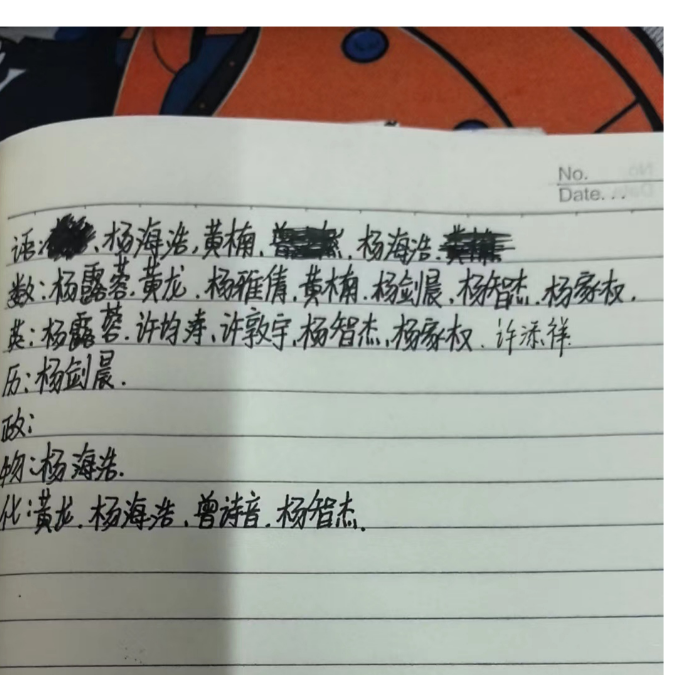 No.
Date...
语: 杨海浩, 黄楠, 曾 , 杨海浩.
数: 杨露蓉, 黄龙, 杨雅倩, 黄楠, 杨剑晨, 杨智杰, 杨家权,
英: 杨露蓉, 许均涛, 许敦宇, 杨智杰, 杨家权, 许添祥
历: 杨剑晨.
政:
物: 杨海浩.
化: 黄龙, 杨海浩, 曾诗音, 杨智杰.